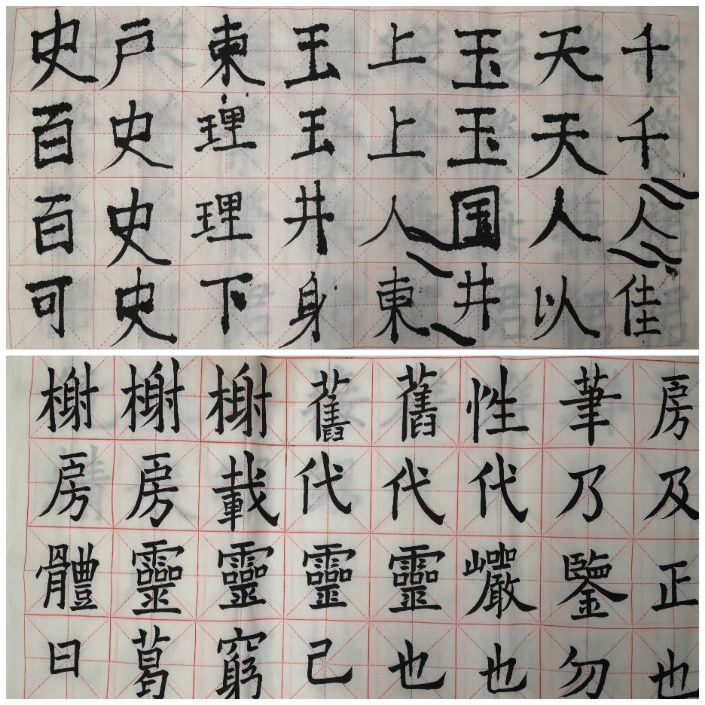 千千人佳
天天人以
玉玉国井
上上人東
王王井身
東理理下
户史史史
史百百可
房及正也
筆乃鑒勿
性代巖也
舊代靈也
舊代靈己
榭載靈窮
榭房靈葛
榭房體曰